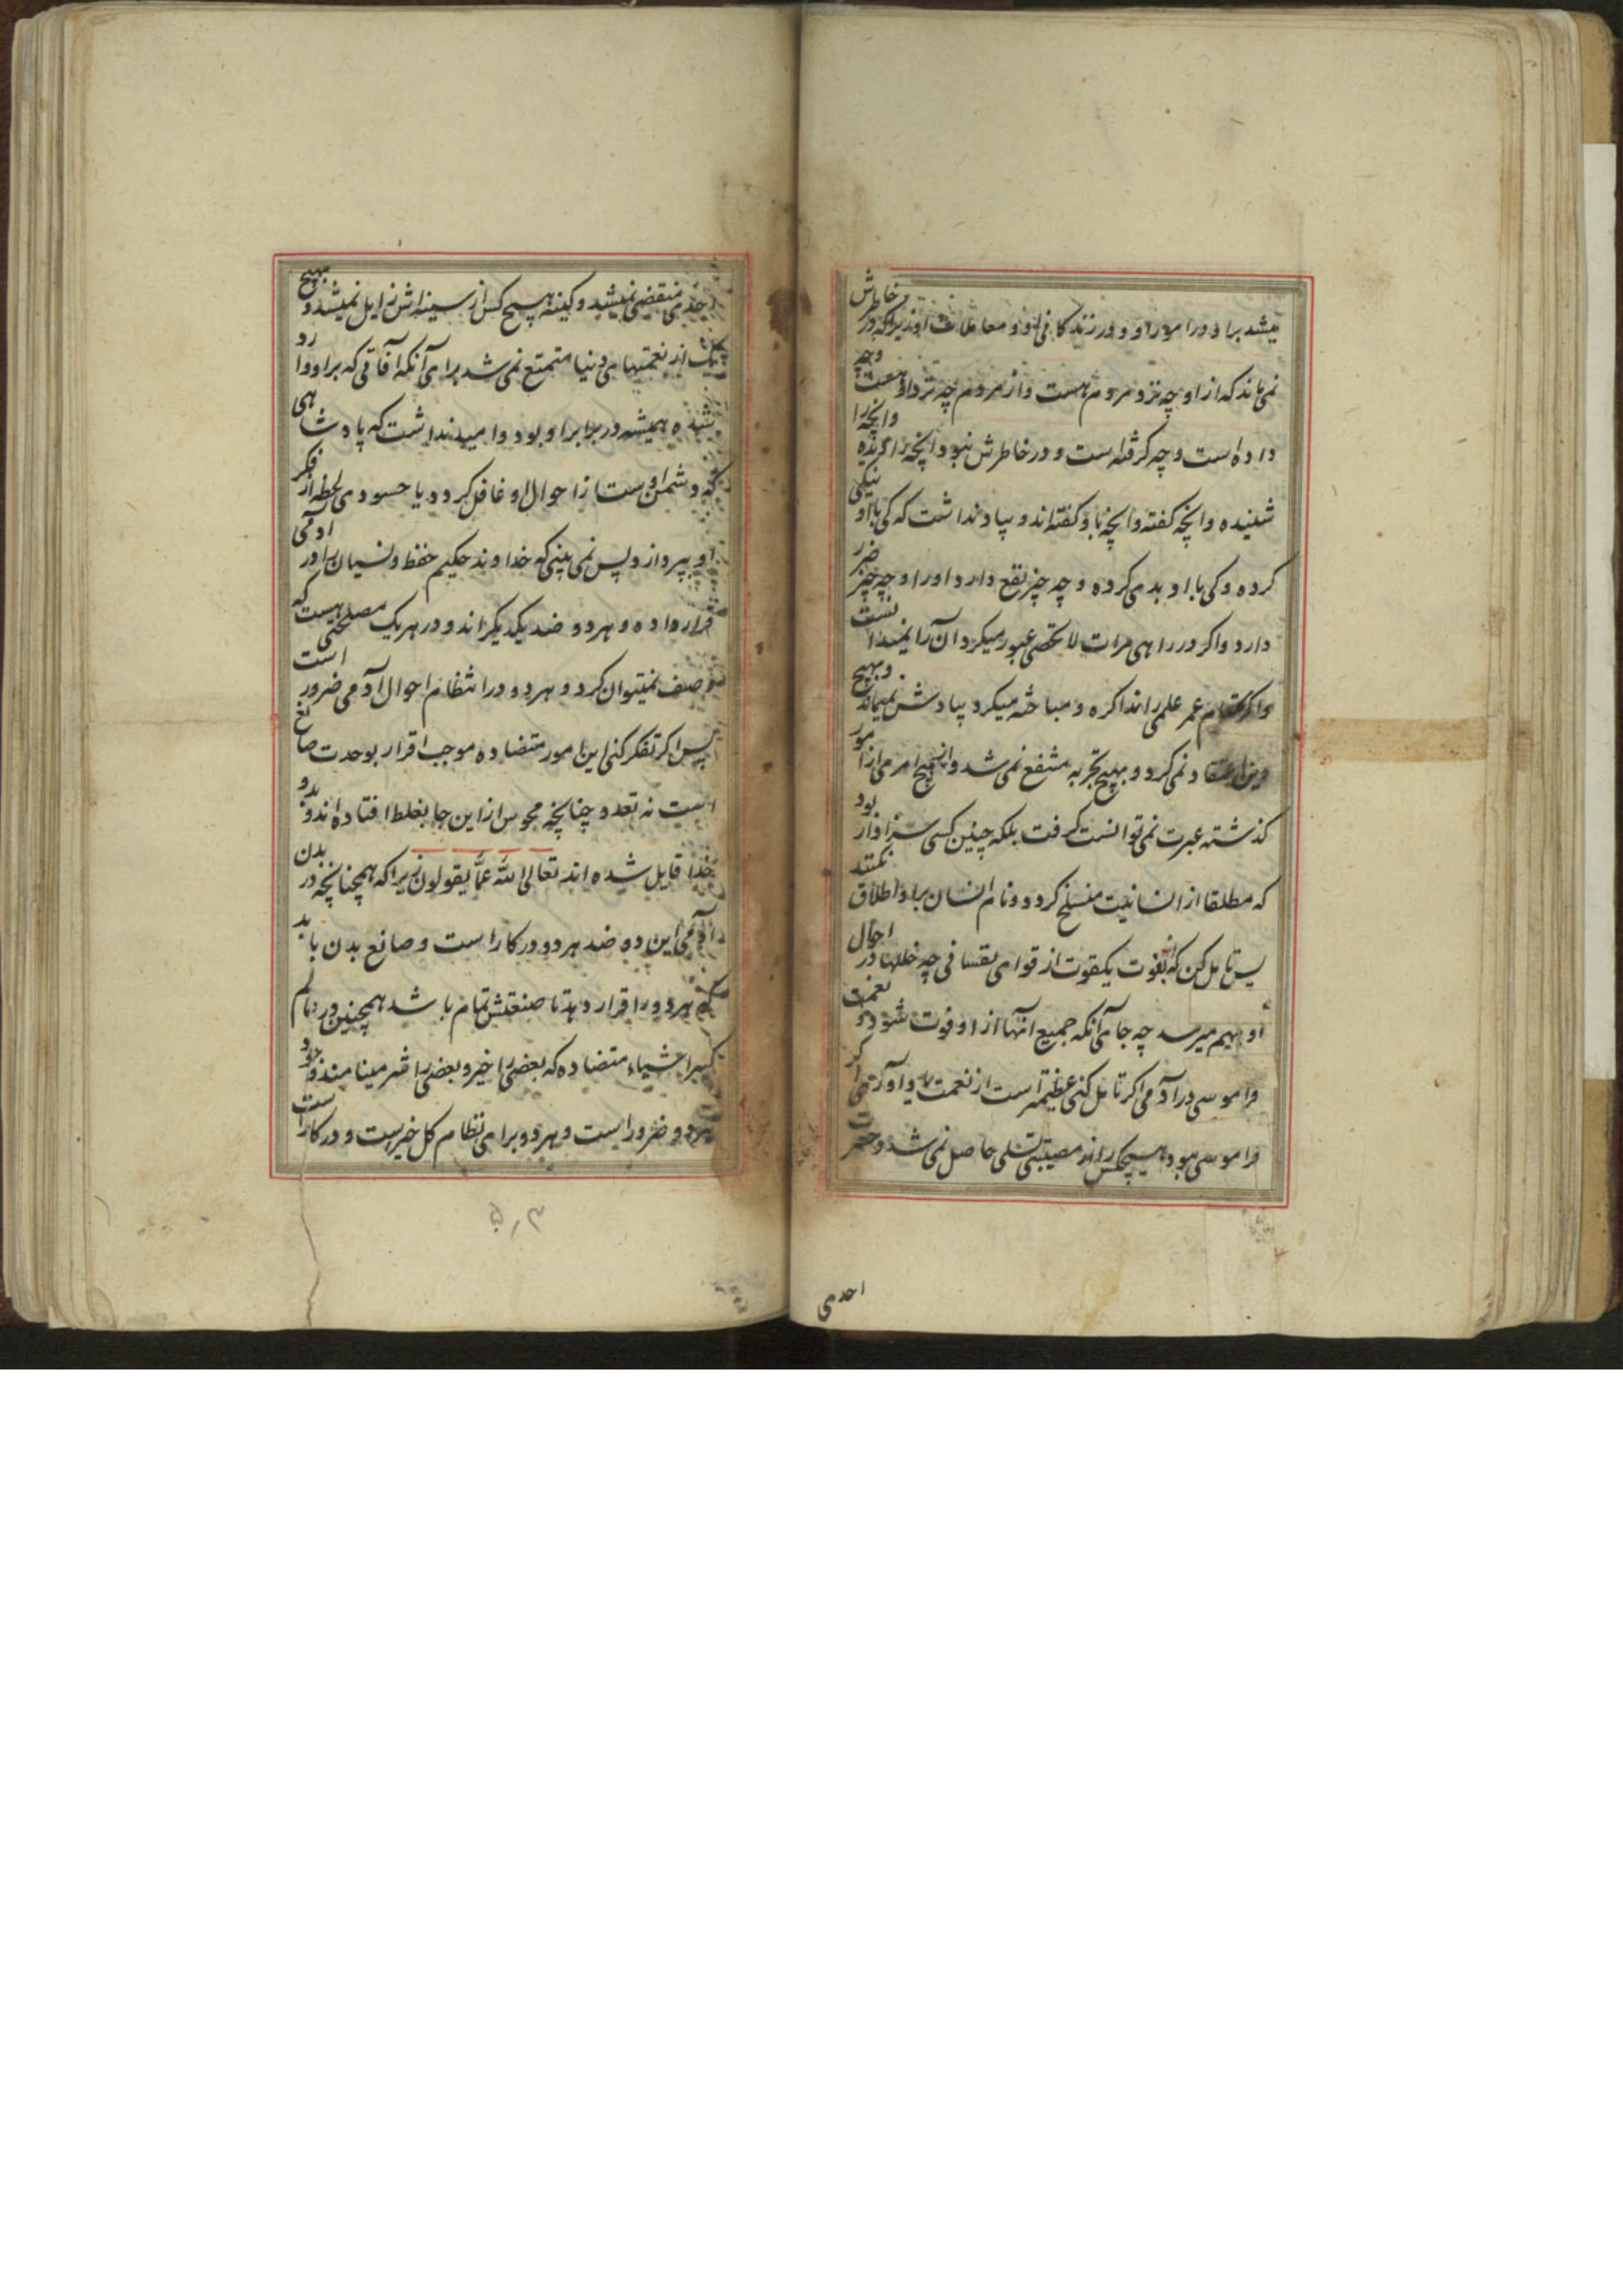 میشد براو در امور او و در زندگانی او و معاملات او زیرا که در خاطرش
نمی‌ماند که از او چه نزد مردم هست و از مردم چه نزد او هست و چه
داده است و چه گرفته است و در خاطرش نبود آنچه را دیده و آنچه را
شنیده و آنچه گفته و آنچه باو گفته‌اند و بیاد نداشت که کی با او نیکی
کرده و کی با او بدی کرده و چه چیز نفع دارد او را و چه چیز ضرر
دارد و اگر در راهی مرات لا تحصی عبور میکرد آن را نمیدانست
و اگر تمام عمر علمی را مذاکره و مباحثه میکرد بیادش نمیماند و بهیچ
دین اعتقاد نمی‌کرد و بهیچ تجربه منتفع نمی‌شد و از هیچ امری از امور
گذشته عبرت نمی‌توانست گرفت بلکه چنین کسی سزاوار بود
که مطلقا از انسانیت منسلخ گردد و نام انسان براو اطلاق نکنند
پس تامل کن که بفوت یکقوت از قوای نفسانی چه خللها در احوال
او بهم میرسد چه جای آنکه جمیع آنها از او فوت شود و نعمت
فراموسی در آدمی اگر تامل کنی عظیمتر است از نعمت یاد آوری اگر
فراموسی نبود هیچکس را از مصیبتی تسلی حاصل نمی‌شد و حسرت
احدی
احدی منقضی نمیشد و کینه هیچ کس از سینه‌اش زایل نمیشد و بهیچ
یک از نعمتهای دنیا متمتع نمی‌شد برای آنکه آفاتی که براو وارد
شده همیشه در برابر او بود و امید نداشت که پادشاهی
که دشمن اوست از احوال او غافل گردد یا حسودی لحظه از فکر
او بپردازد پس نمی بینی که خداوند حکیم حفظ و نسیان را در آدمی
قرار داده و هر دو ضد یکدیگراند و در هر یک مصلحتی هست که
وصف نمیتوان کرد و هر دو در انتظام احوال آدمی ضرور است
پس اگر تفکر کنی این امور متضاده موجب اقرار بوحدت صانع
است نه تعدد چنانچه مجوس از این جا بغلط افتاده‌اند و بدو
خدا قایل شده‌اند تعالی الله عما یقولون زیرا که همچنانچه در بدن
آدمی این دو ضد هر دو در کار است و صانع بدن باید
که هر دو را قرار دهد تا صنعتش تمام باشد همچنین در عالم
کبیر اشیاء متضاده که بعضی را خیر و بعضی را شر مینامند وجود
هر دو ضرور است و هر دو برای نظام کل خیرست و در کار است